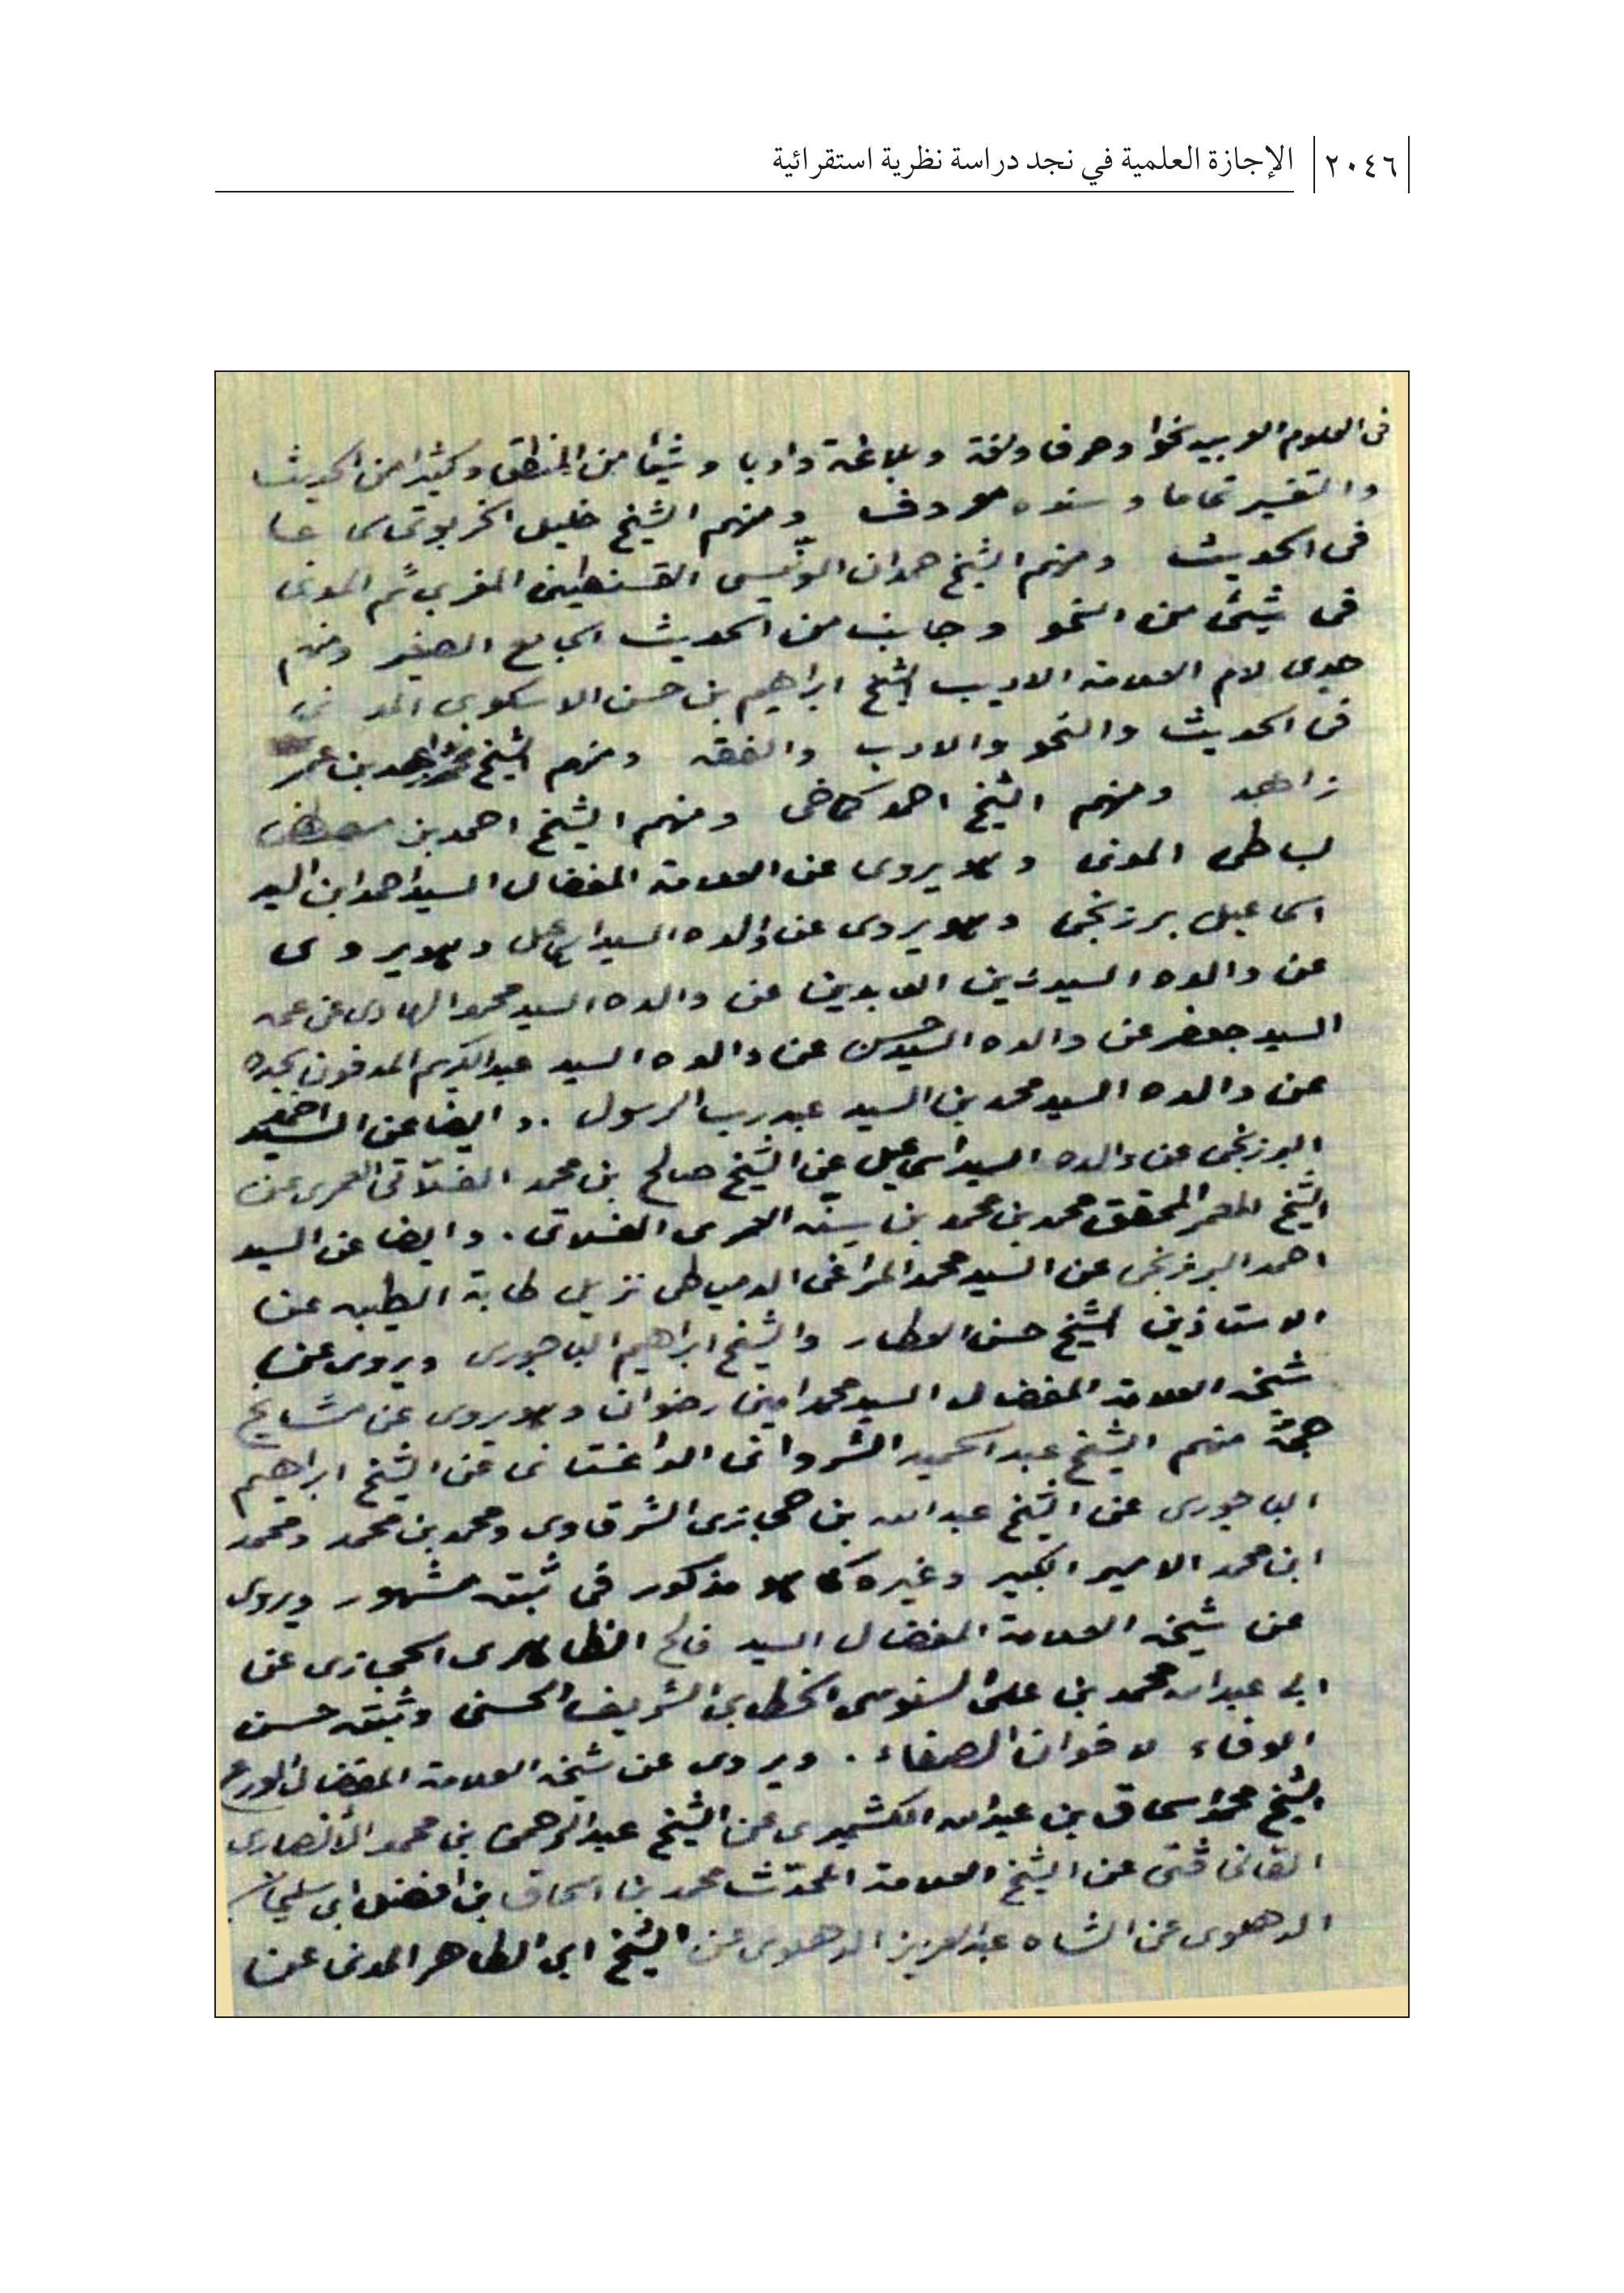 ٢٠٤٦ الإجازة العلمية في نجد دراسة نظرية استقرائية
فى العلوم العربيه نحوا وصرفا ولغة وبلاغة وادبا وشيئا من المنطق وكثيرا من الحديث
والتفسير تماما وسنده معروف ومنهم الشيخ خليل الخربوتى
فى الحديث ومنهم الشيخ حمدان الونّيسى القسنطينى المغربى ثم المدنى
فى شيئ من النحو وجانب من الحديث الجامع الصغير ومنهم
جدى لام العلامة الاديب الشيخ ابراهيم بن حسن الاسكوبى المدنى
فى الحديث والنحو والادب والفقه ومنهم الشيخ بن عمر
زاهد ومنهم الشيخ احمد كماخى ومنهم الشيخ احمد بن مصطفى
بساطى المدنى وهو يروى عن العلامة المفضال السيد احمد ابن السيد
اسماعيل برزنجى وهو يروى عن والده السيد اسماعيل وهو يروى
عن والده السيد زين العابدين عن والده السيد محمد الهادى عن عمه
السيد جعفر عن والده السيد حسن عن والده السيد عبد الكريم المدفون بجده
عن والده السيد محمد بن السيد عبد رب الرسول . وايضا عن السيد احمد
البرزنجى عن والده السيد اسماعيل عن الشيخ صالح بن محمد الفلّانى العمرى عن
الشيخ المعمر المحقق محمد بن محمد بن سنه العمرى الفلانى . وايضا عن السيد
احمد البرزنجى عن السيد محمد المراغى الدمياطى نزيل طابة الطيبه عن
الاستاذين الشيخ حسن العطار والشيخ ابراهيم الباجورى ويروى عن
شيخه العلامة المفضال السيد محمد امين رضوان وهو يروى عن مشايخ
جمّة منهم الشيخ عبد الحميد الشروانى الداغستانى عن الشيخ ابراهيم
الباجورى عن الشيخ عبد الله بن حجازى الشرقاوى ومحمد بن محمد ومحمد
ابن محمد الامير الكبير وغيره كما هو مذكور فى ثبته مشهور ويروى
عن شيخه العلامة المفضال السيد فالح الظاهرى الحجازى عن
ابى عبد الله محمد بن على السنوسى الخطابى الشريف الحسنى وثبته حسن
الوفاء لاخوان الصفاء . ويروى عن شيخه العلامة المفضال الورع
الشيخ محمد اسحاق بن عبد الله الكشميرى عن الشيخ عبد الرحمن بن محمد الأنصارى
عن الشيخ العلامة المحدّث محمد بن اسحاق بن افضل ابى سليمان
الدهلوى عن الشاه عبد العزيز الدهلوى عن الشيخ ابى الطاهر المدنى عن